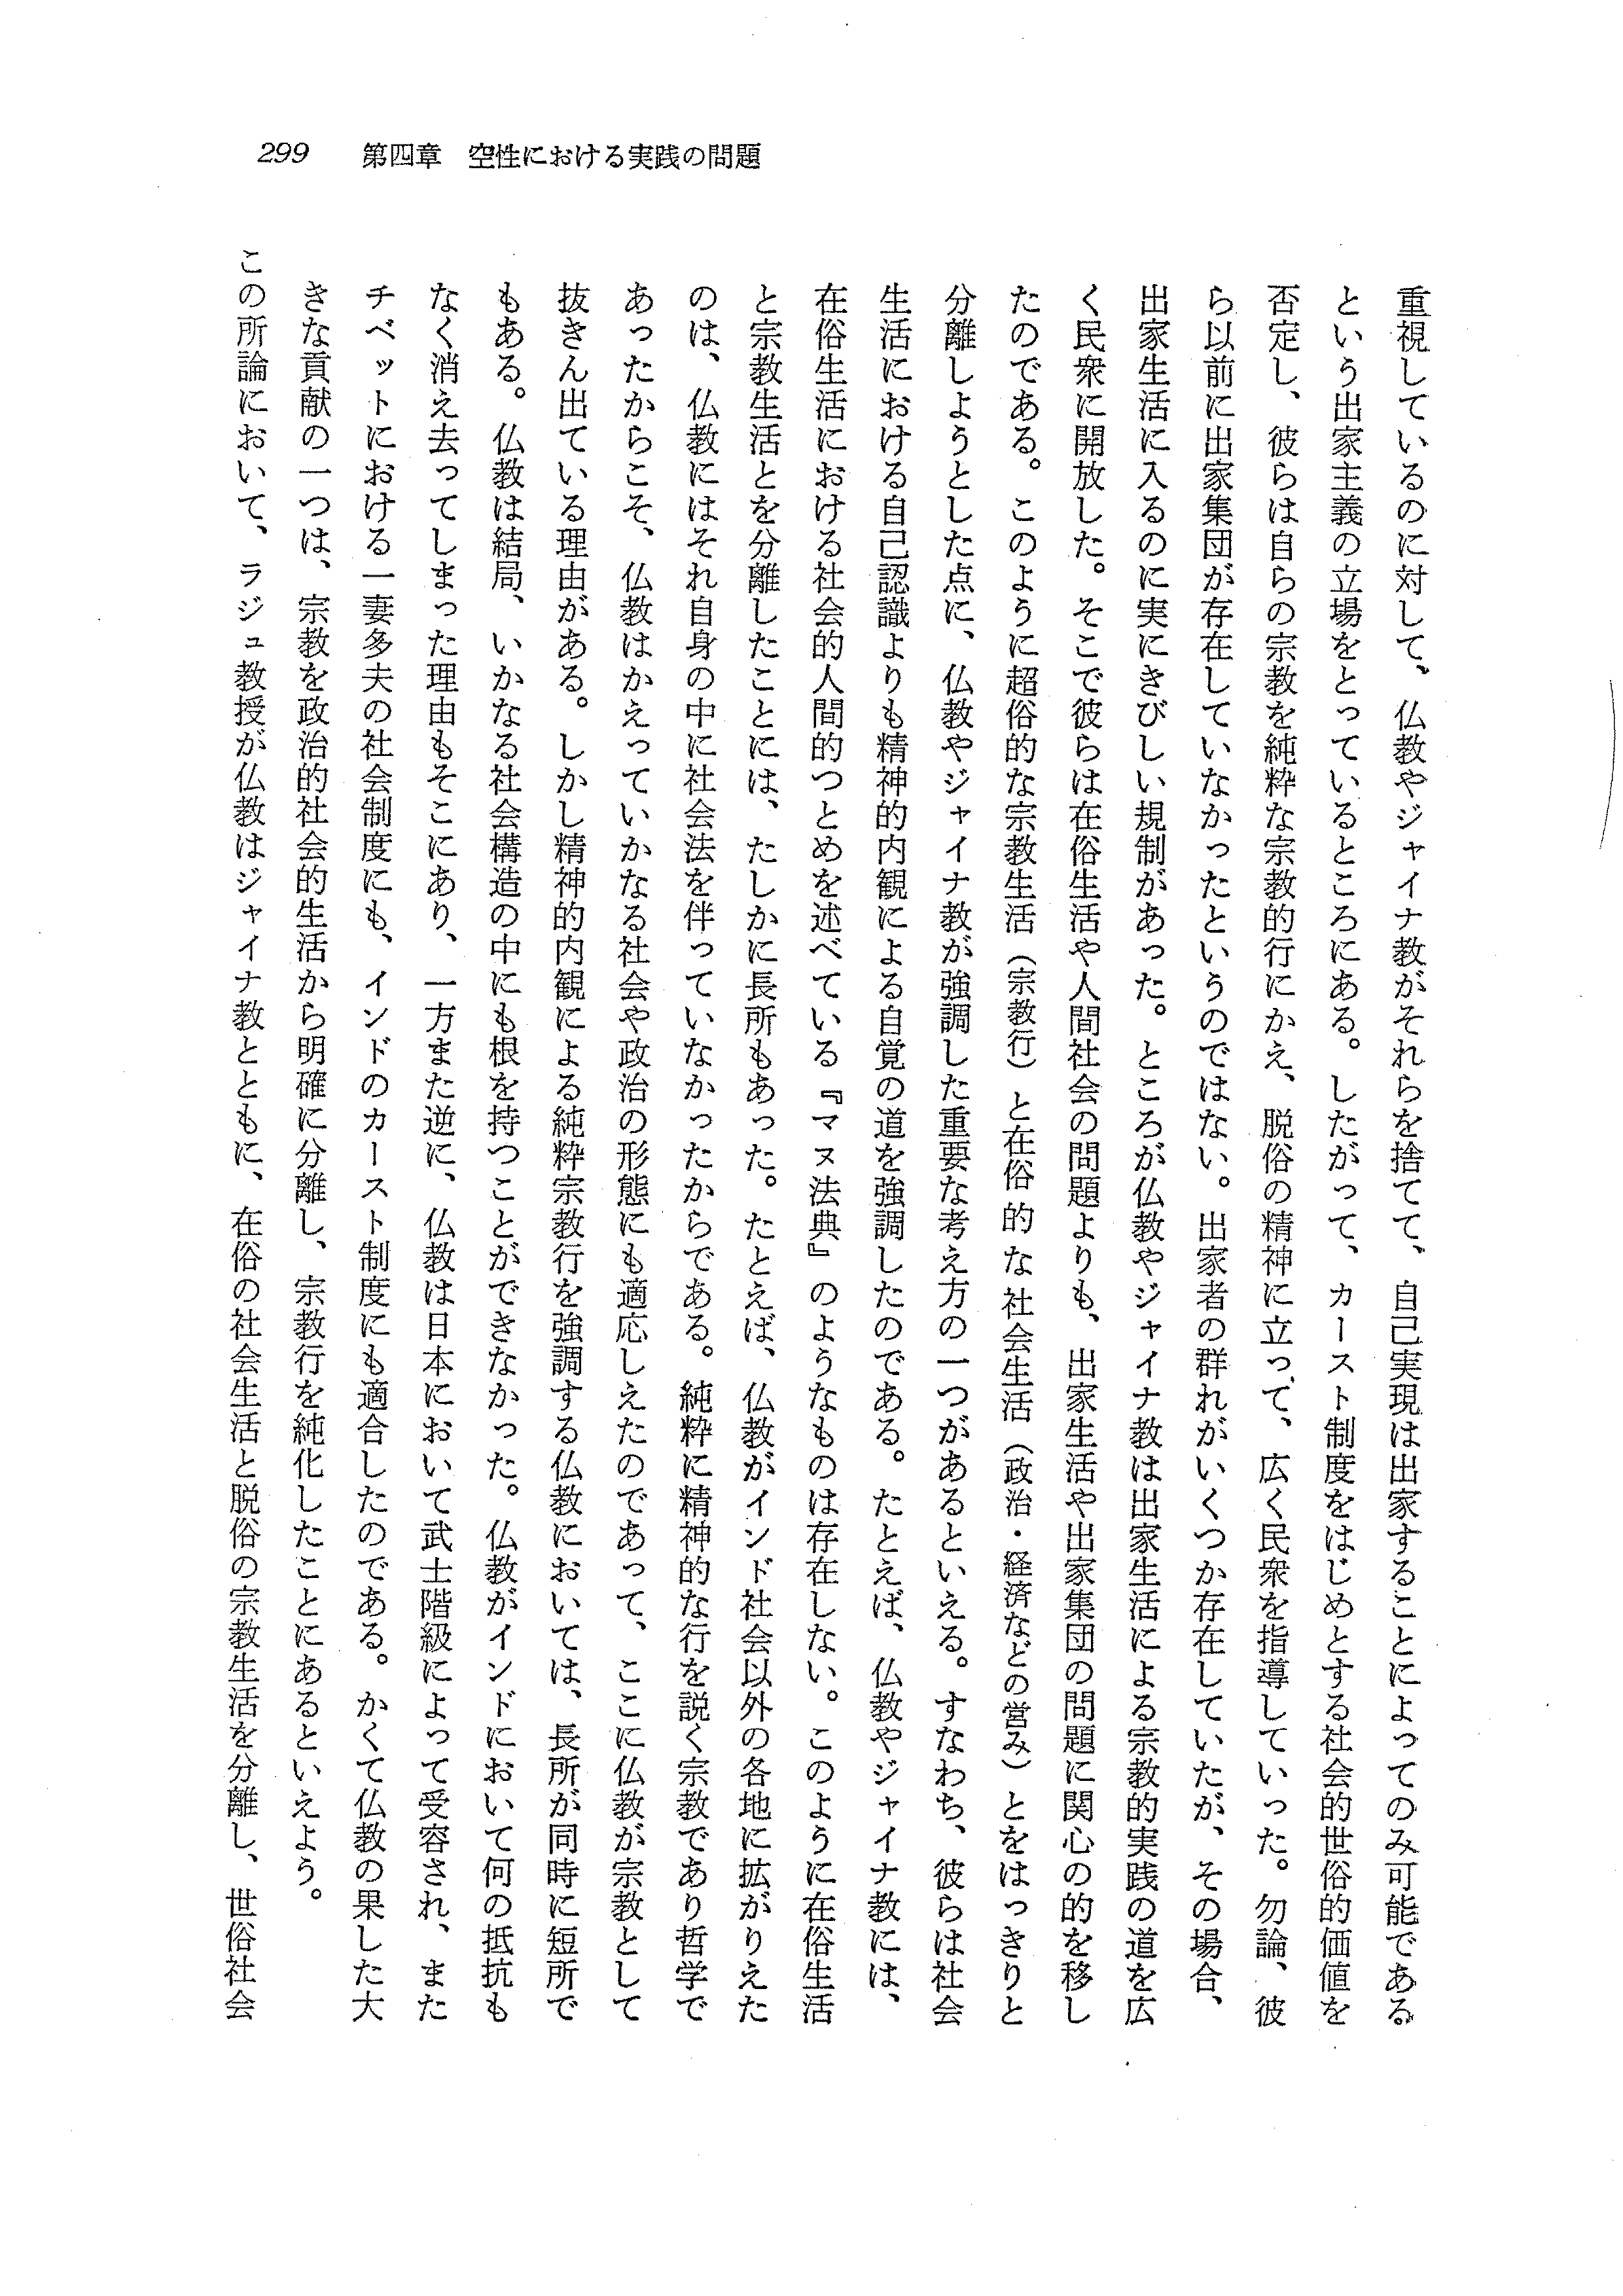 299　第四章　空性における実践の問題
重視しているのに対して、仏教やジャイナ教がそれらを捨てて、自己実現は出家することによってのみ可能である
という出家主義の立場をとっているところにある。したがって、カースト制度をはじめとする社会的世俗的価値を
否定し、彼らは自らの宗教を純粋な宗教的行にかえ、脱俗の精神に立って、広く民衆を指導していった。勿論、彼
ら以前に出家集団が存在していなかったというのではない。出家者の群れがいくつか存在していたが、その場合、
出家生活に入るのに実にきびしい規制があった。ところが仏教やジャイナ教は出家生活による宗教的実践の道を広
く民衆に開放した。そこで彼らは在俗生活や人間社会の問題よりも、出家生活や出家集団の問題に関心の的を移し
たのである。このように超俗的な宗教生活（宗教行）と在俗的な社会生活（政治・経済などの営み）とをはっきりと
分離しようとした点に、仏教やジャイナ教が強調した重要な考え方の一つがあるといえる。すなわち、彼らは社会
生活における自己認識よりも精神的内観による自覚の道を強調したのである。たとえば、仏教やジャイナ教には、
在俗生活における社会的人間的つとめを述べている『マヌ法典』のようなものは存在しない。このように在俗生活
と宗教生活とを分離したことには、たしかに長所もあった。たとえば、仏教がインド社会以外の各地に拡がりえた
のは、仏教にはそれ自身の中に社会法を伴っていなかったからである。純粋に精神的な行を説く宗教であり哲学で
あったからこそ、仏教はかえっていかなる社会や政治の形態にも適応しえたのであって、ここに仏教が宗教として
抜きん出ている理由がある。しかし精神的内観による純粋宗教行を強調する仏教においては、長所が同時に短所で
もある。仏教は結局、いかなる社会構造の中にも根を持つことができなかった。仏教がインドにおいて何の抵抗も
なく消え去ってしまった理由もそこにあり、一方また逆に、仏教は日本において武士階級によって受容され、また
チベットにおける一妻多夫の社会制度にも、インドのカースト制度にも適合したのである。かくて仏教の果した大
きな貢献の一つは、宗教を政治的社会的生活から明確に分離し、宗教行を純化したことにあるといえよう。
この所論において、ラジュ教授が仏教はジャイナ教とともに、在俗の社会生活と脱俗の宗教生活を分離し、世俗社会